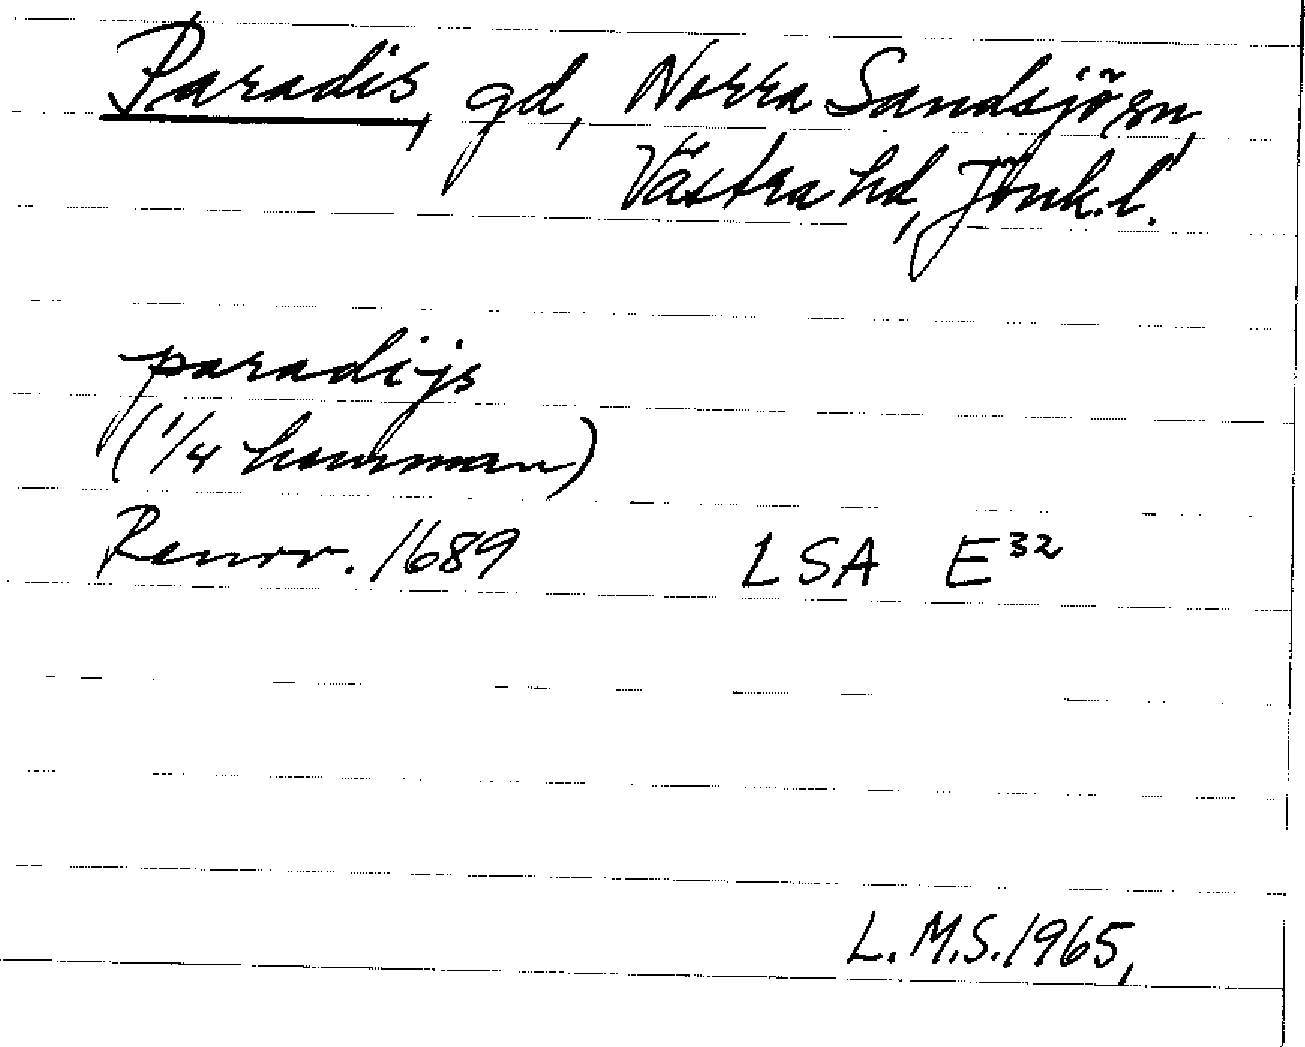 Paradis, gd, Norra Sandsjö sn,
Västra hd, Jönk.l.
paradijs
(1/4 hemman)
Renov. 1689 LSA E32
L.M.S. 1965,